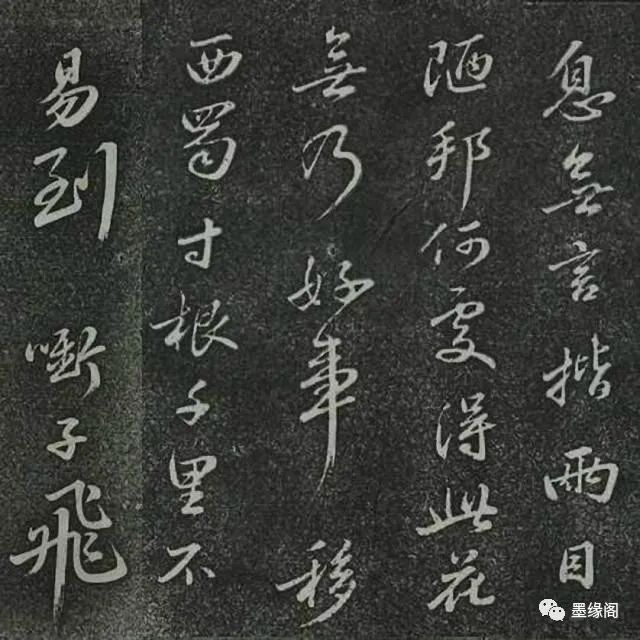 息無言揩兩目
陋邦何處得此花
無乃好事移
西蜀寸根千里不
易到啣子飛
墨缘阁